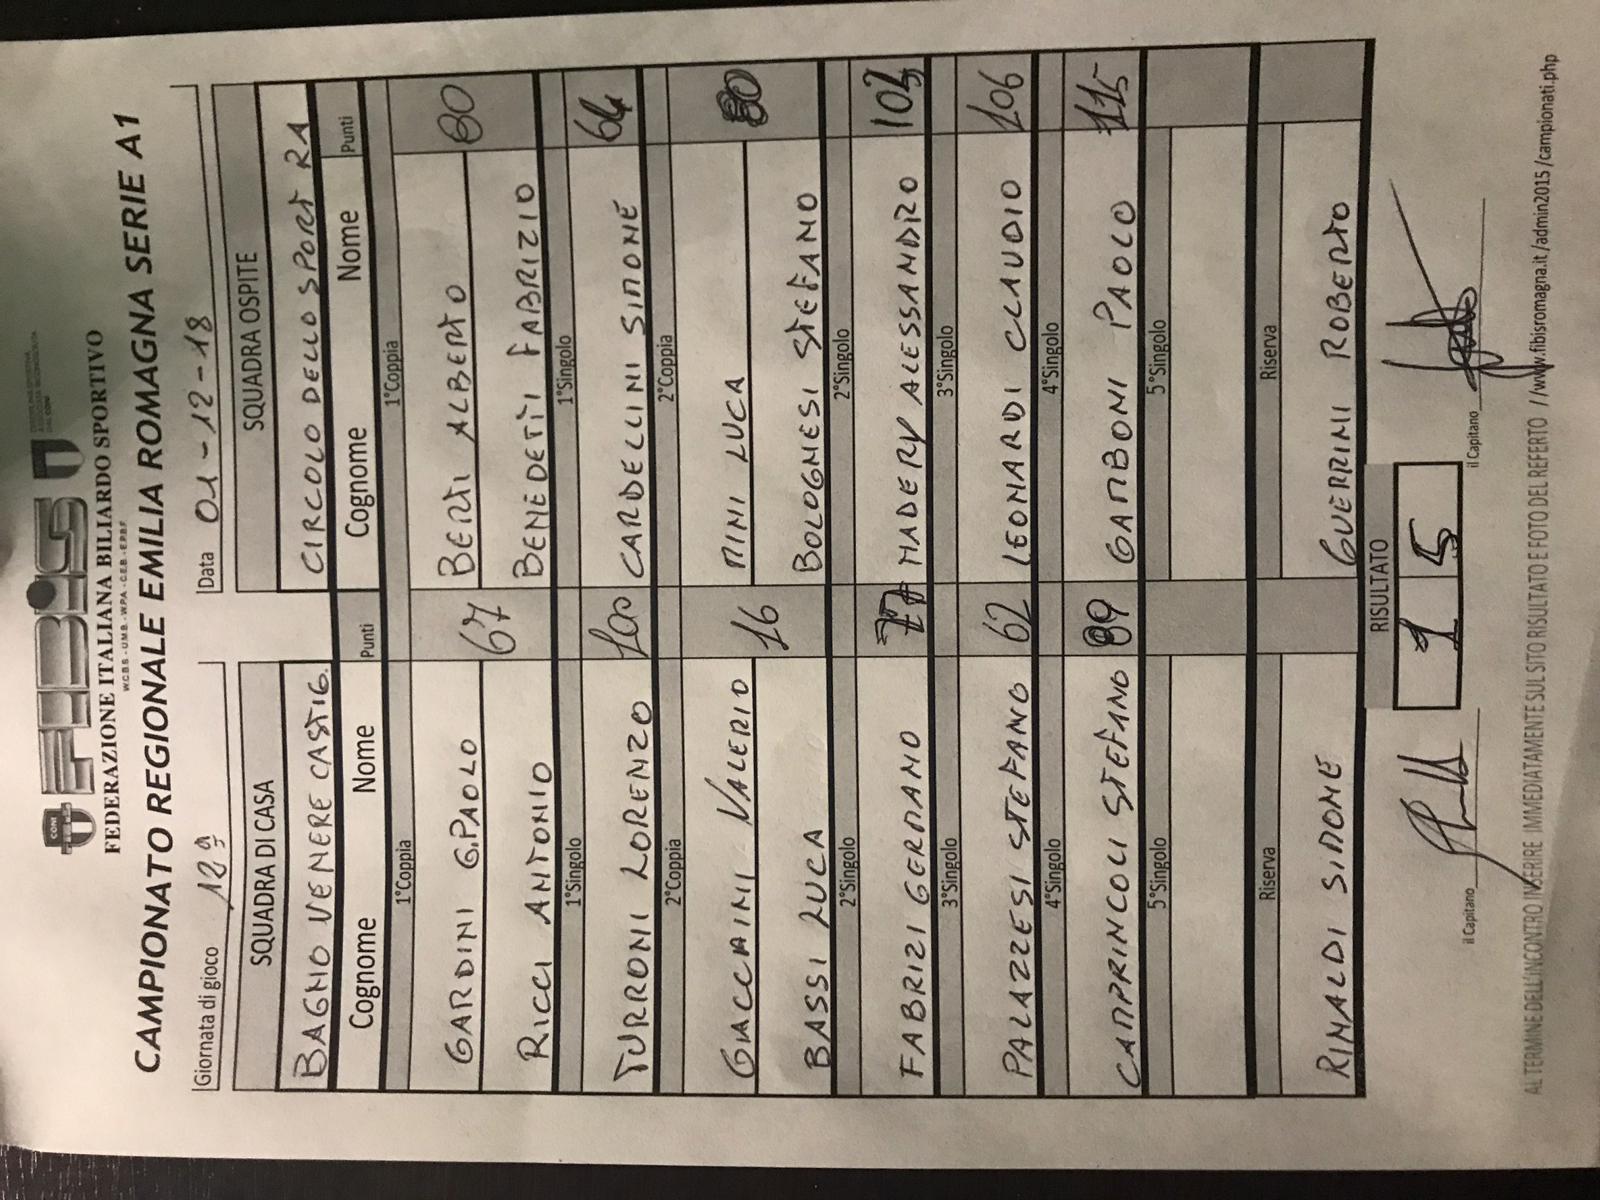 CONI
FIBIS
FEDERAZIONE ITALIANA BILIARDO SPORTIVO
W.C.B.S. - U.M.B. - W.P.A. - C.E.B. - E.P.B.F.
CAMPIONATO REGIONALE EMILIA ROMAGNA SERIE A1
Giornata di gioco 12ª Data 01-12-18
SQUADRA DI CASA SQUADRA OSPITE
BAGNO VENERE CASTIG. CIRCOLO DELLO SPORT RA
Cognome Nome Punti Cognome Nome Punti
1°Coppia 1°Coppia
GARDINI G.PAOLO 67 BERTI ALBERTO 80
RICCI ANTONIO BENEDETTI FABRIZIO
1°Singolo 1°Singolo
TURRONI LORENZO 100 CARDELLINI SIMONE 64
2°Coppia 2°Coppia
GIACCHINI VALERIO 16 MINI LUCA 80
BASSI LUCA BOLOGNESI STEFANO
2°Singolo 2°Singolo
FABRIZI GERMANO 77 MADERY ALESSANDRO 102
3°Singolo 3°Singolo
PALAZZESI STEFANO 62 LEONARDI CLAUDIO 106
4°Singolo 4°Singolo
CAMPRINCOLI STEFANO 89 GAMBONI PAOLO 115
5°Singolo 5°Singolo
Riserva Riserva
RINALDI SIMONE GUERRINI ROBERTO
RISULTATO
1 5
il Capitano il Capitano
AL TERMINE DELL'INCONTRO INSERIRE IMMEDIATAMENTE SUL SITO RISULTATO E FOTO DEL REFERTO //www.fibisromagna.it /admin2015 /campionati.php